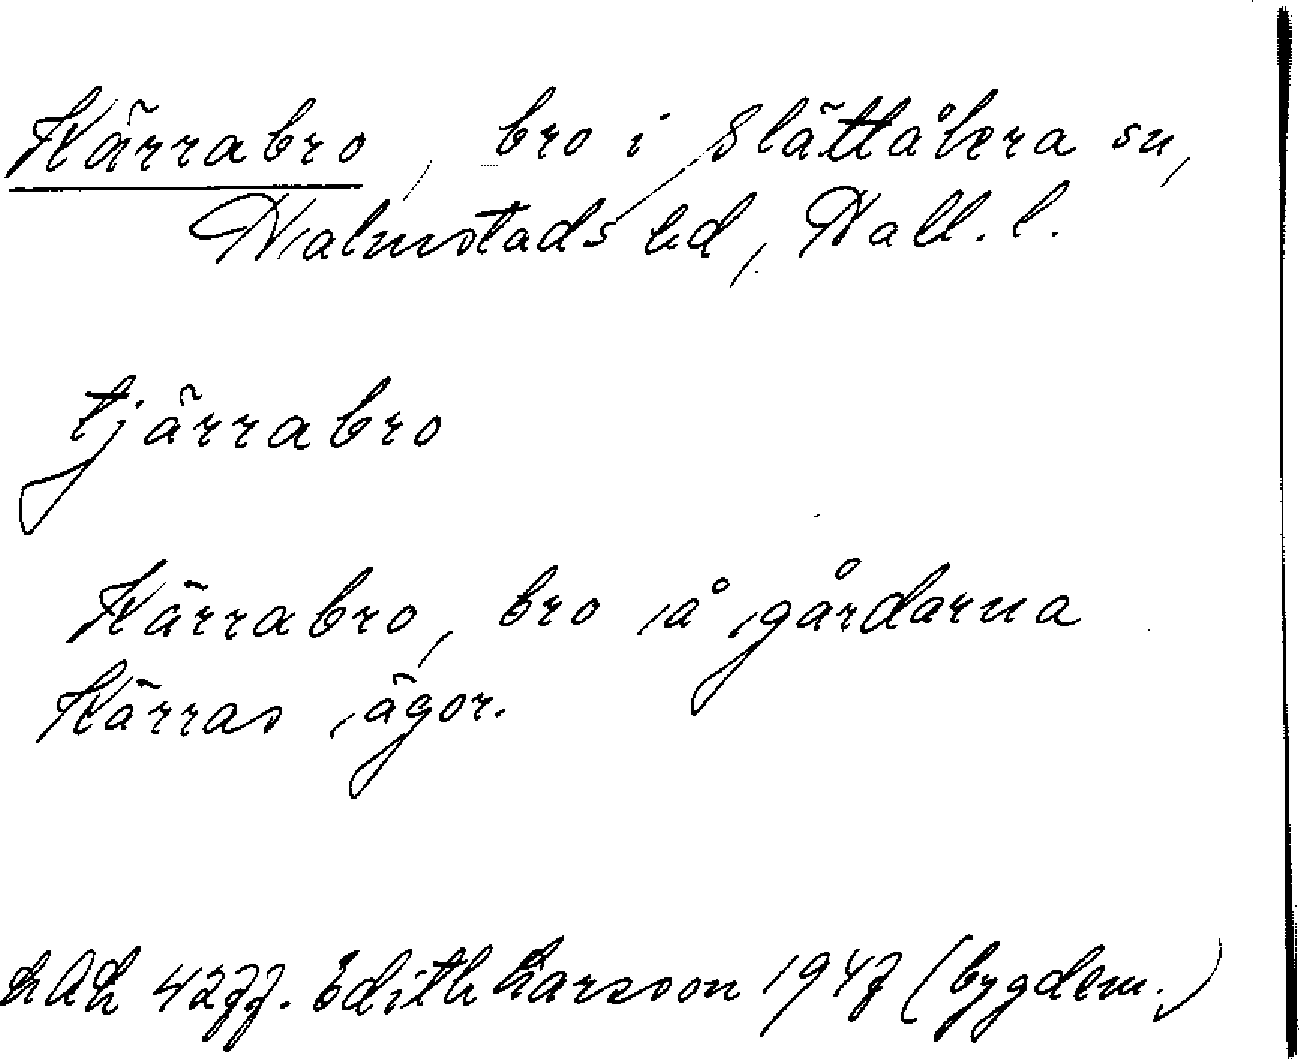 Kärrabro, bro i Slättåkra sn,
Halmstads hd, Hall. l.
tjärrabro
Kärrabro, bro å gårdarna
Kärras ägor.
LAL 4277. Edith Larsson 1947 (bygdem.)